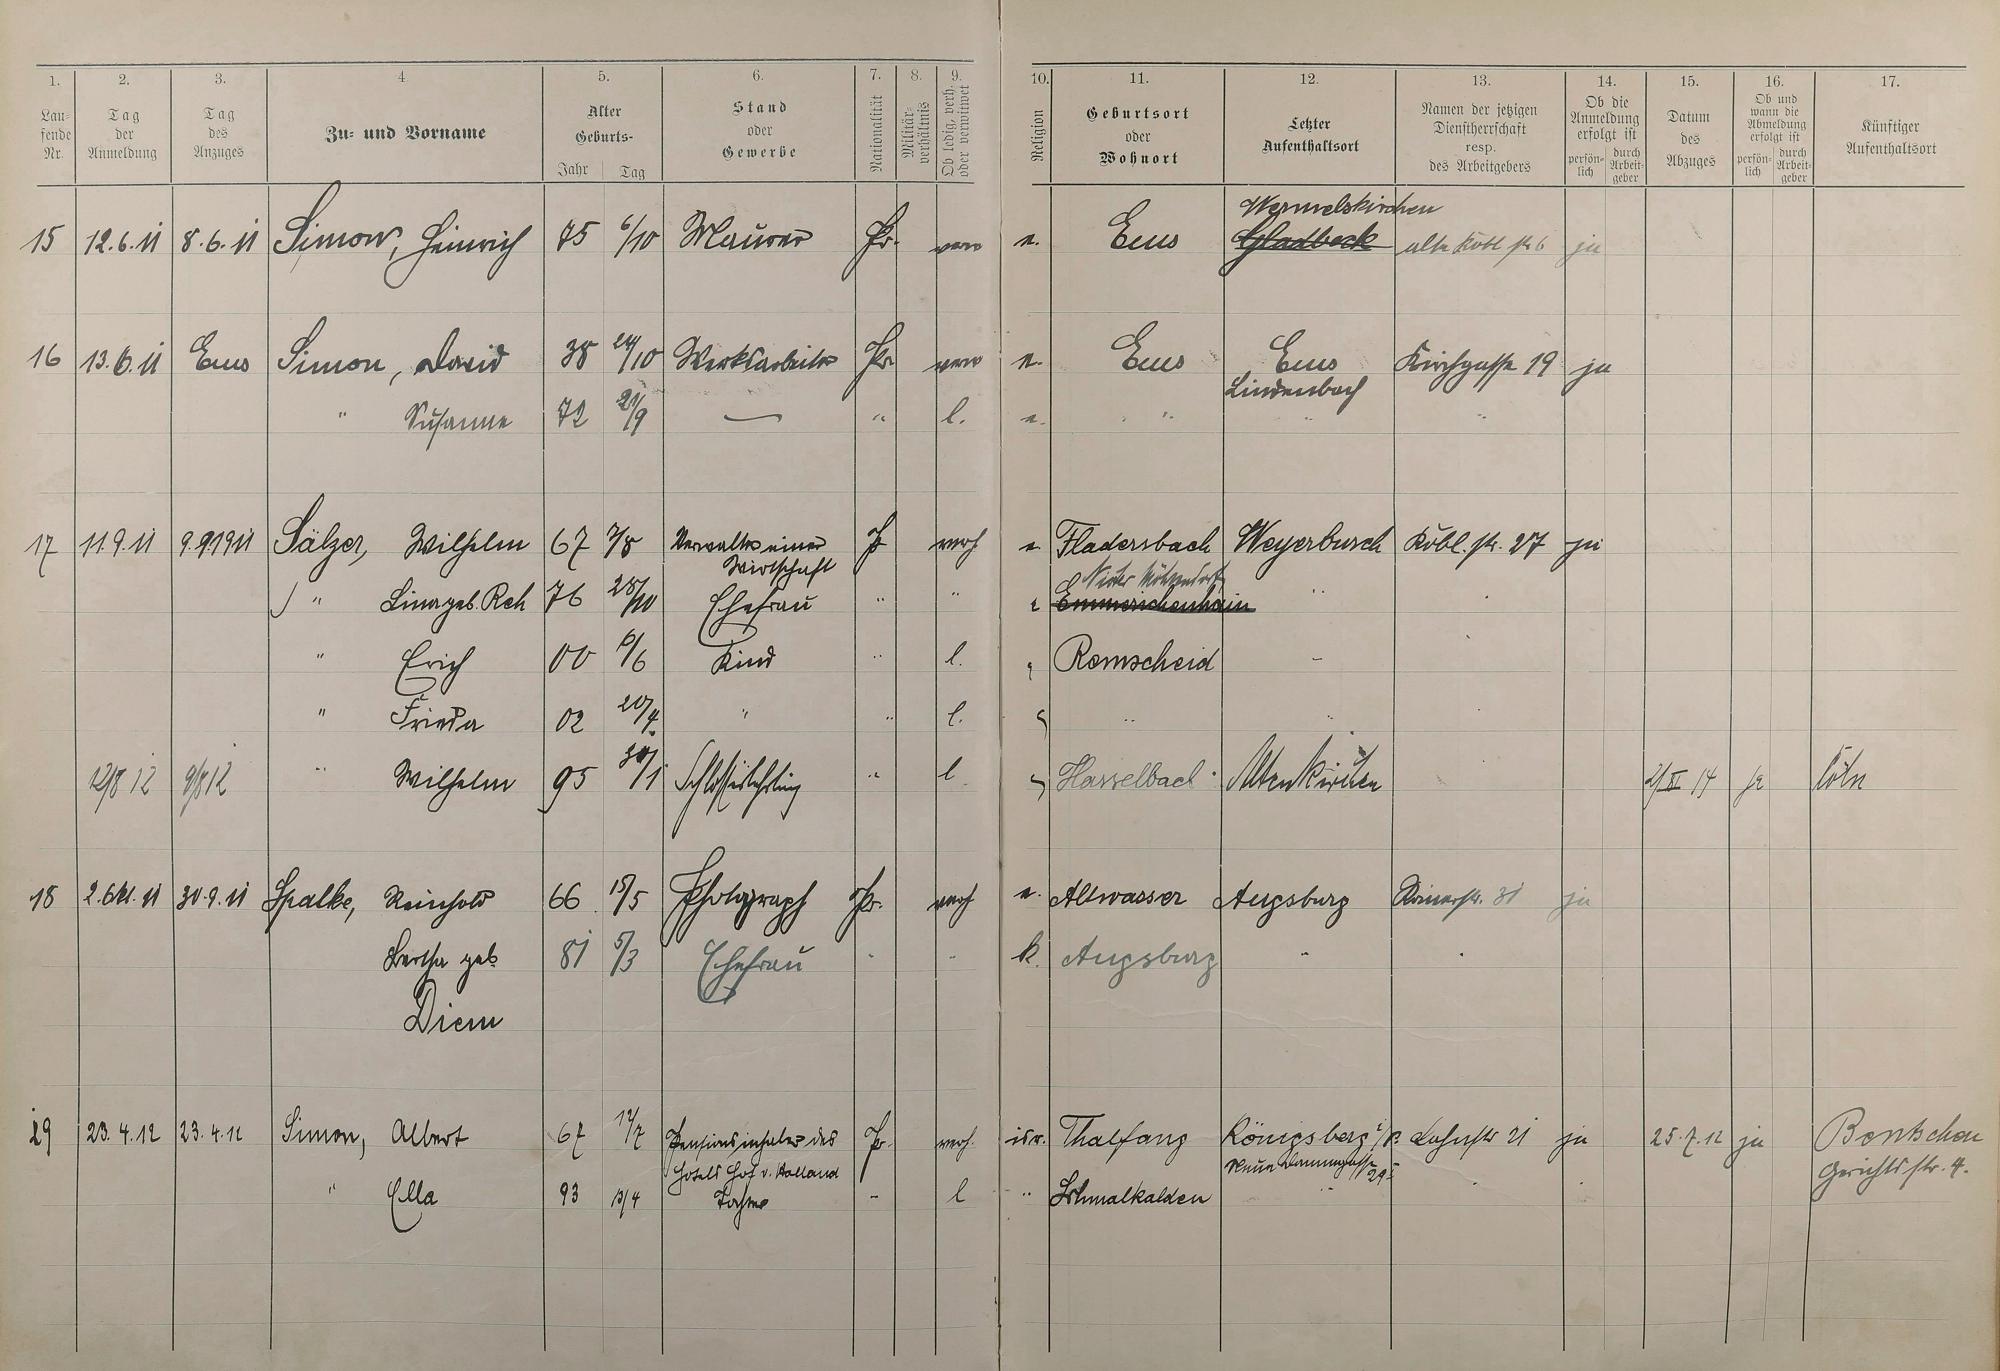 1. 2. 3. 4 5. 6. 7. 8. 9. 10. 11. 12. 13. 14. 15. 16. 17.
Lau-
fende
Nr.
Tag
der
Anmeldung
Tag
des
Anzuges
Zu- und Vorname
Alter
Geburts-
Jahr Tag
Stand
oder
Gewerbe
Nationalität
Militär-
verhältnis
Ob ledig, verh.
oder verwitwet
Religion
Geburtsort
oder
Wohnort
Letzter
Aufenthaltsort
Namen der jetzigen
Dienstherrschaft
resp.
des Arbeitgebers
Ob die
Anmeldung
erfolgt ist
persön-
lich
durch
Arbeit-
geber
Datum
des
Abzuges
Ob und
wann die
Abmeldung
erfolgt ist
persön-
lich
durch
Arbeit-
geber
Künftiger
Aufenthaltsort
Wermelskirchen
15 12.6.11 8.6.11 Simon, Heinrich 75 6/10 Maurer Pr. verw e. Ems Gladbeck alte Kobl str 6 ja
16 13.6.11 Ems Simon, David 38 24/10 Werksarbeiter Pr. verw e. Ems Ems Kirchgasse 19 ja
Lindenbach
" Susanne 72 21/9 — " l. e. " " "
17 11.9.11 9.9.1911 Sälzer, Wilhelm 67 7/8 Verwalter einer Pr verh e. Fladersbach Weyerbusch Kobl. str. 27 ja
Wirtschaft
Nieder
" Lina geb. Reh 76 28/10 Ehefrau " " Emmerichenhain "
" Erich 00 6/6 Kind " l. Remscheid "
" Frieda 02 20/4. " " l. " "
12/8 12 9/8 12 " Wilhelm 95 30/1 Schlosserlehrling " l Hasselbach Altenkirchen 2/XI 14 ja Cöln
18 2.Okt.11 30.9.11 Spalke, Reinhold 66 15/5 Photograph Pr. verh e. Altwasser Augsburg Römerstr. 31 ja
Bertha geb 81 5/3 Ehefrau " " k. Augsburg " "
Diem
19 23.4.12 23.4.12 Simon, Albert 67 12/7 Pensionsinhaber des Pr. verh. isr. Thalfang Königsberg i/P. Lahnstr 21 ja 25.7.12 ja Bentschen
Hotels Hof v. Holland Neue Dammgasse 29 Gerichtsstr. 4.
" Ella 93 13/4 Tochter " l " Schmalkalden " "